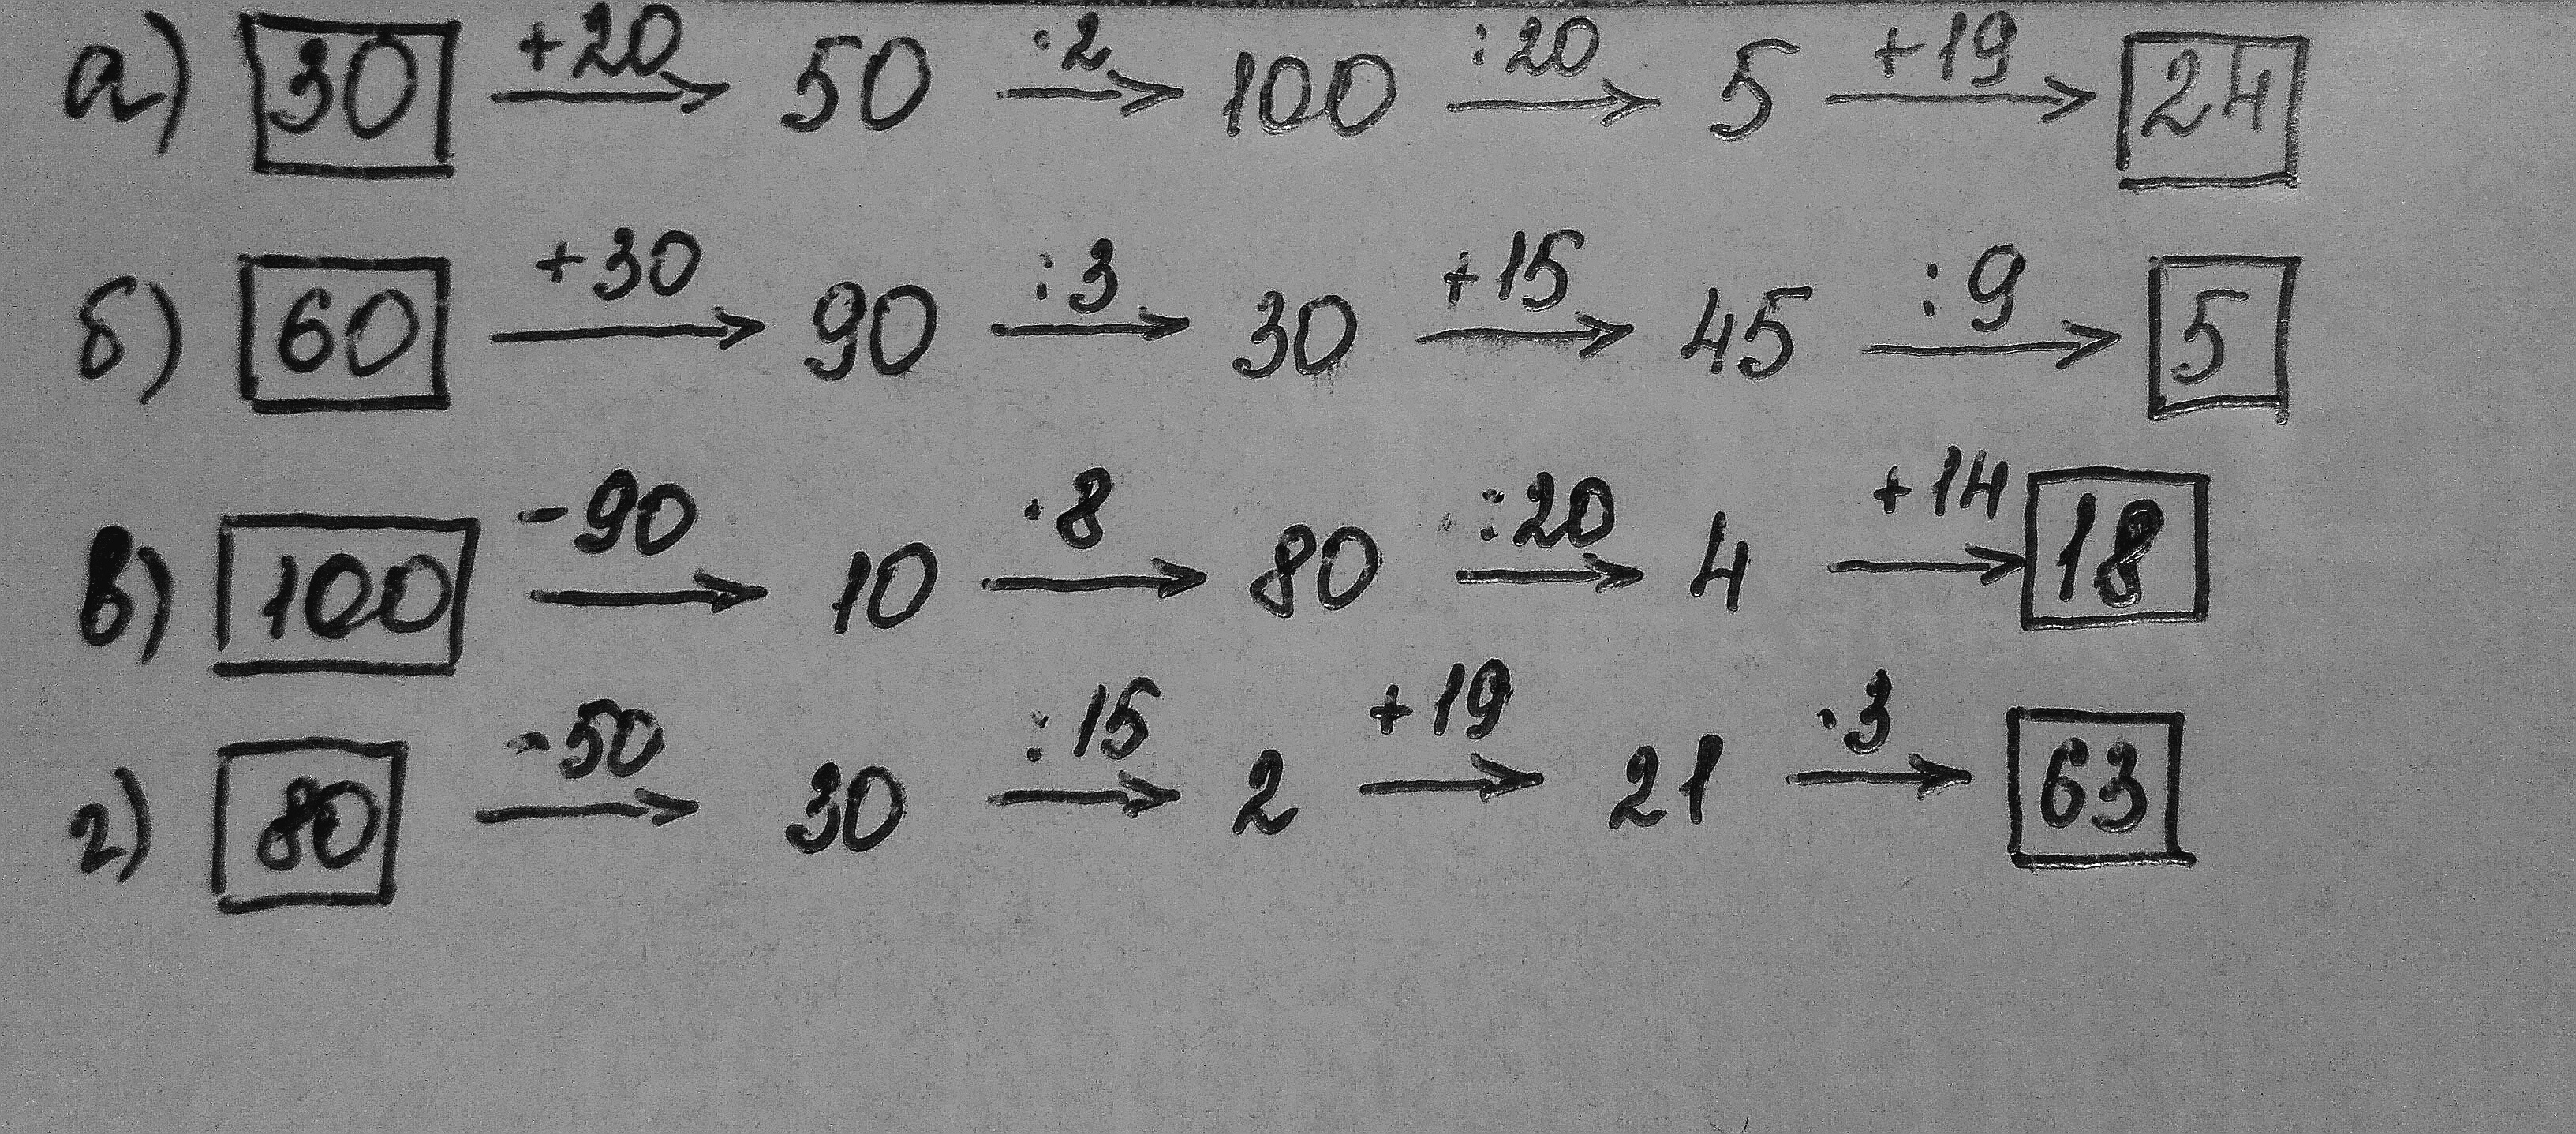 а) 30 +20 → 50 ·2 → 100 :20 → 5 +19 → 24
б) 60 +30 → 90 :3 → 30 +15 → 45 :9 → 5
в) 100 -90 → 10 ·8 → 80 :20 → 4 +14 → 18
г) 80 -50 → 30 :15 → 2 +19 → 21 ·3 → 63